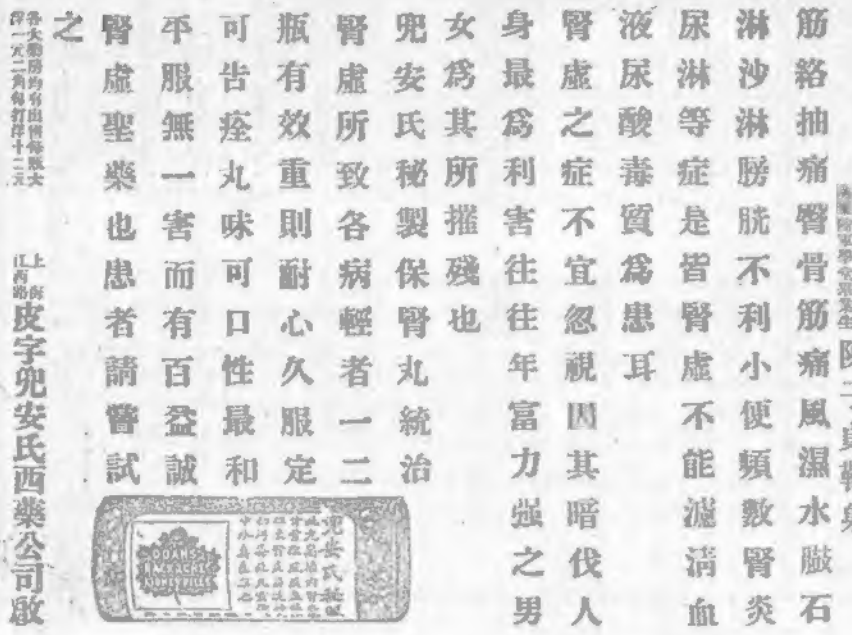 陸軍學堂畢業生
筋絡抽痛臀骨筋痛風濕水臌石
淋沙淋膀胱不利小便頻數腎炎
尿淋等症是皆腎虛不能濾清血
液尿酸毒質爲患耳
腎虛之症不宜忽視因其暗伐人
身最爲利害往往年富力强之男
女爲其所摧殘也
兜安氏秘製保腎丸統治
腎虛所致各病輕者一二
瓶有效重則耐心久服定
可告痊丸味可口性最和
平服無一害而有百益誠
腎虛聖藥也患者請嘗試
之
各大藥房均有出售每瓶大
洋一元二角每打洋十二元
上海
江西路
皮字兜安氏西藥公司啟
兜安氏秘製
DOANS
BACKACHE
KIDNEY PILLS